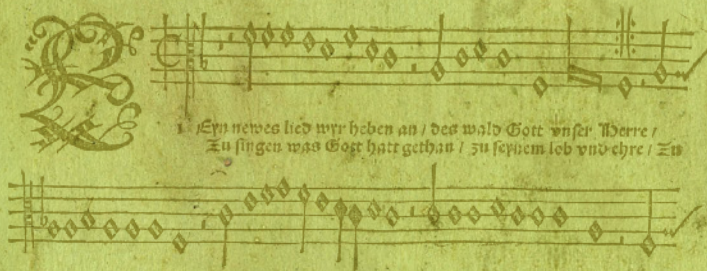 Eyn newes lied wyr heben an / des wald Gott vnser Herre /
Zu singen was Gott hatt gethan / zu seynem lob vnd ehre / Zu